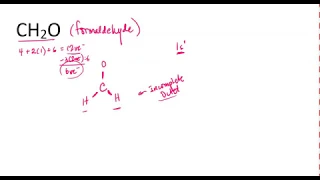 CH₂O (formaldehyde)
4 + 2(1) + 6 = 12 ve⁻
6 ve⁻
O
C
H H
← incomplete
Octet